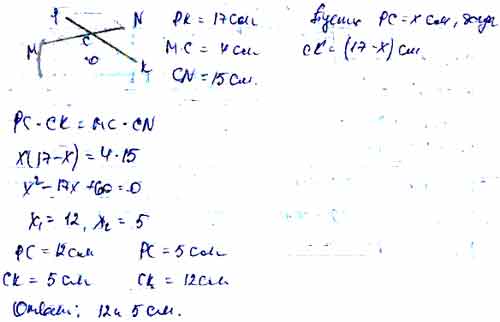 P N PK = 17 см Пусть PC = x см, тогда
M C MC = 4 см CK = (17-x) см
O K CN = 15 см.
PC · CK = MC · CN
x(17-x) = 4·15
x² - 17x + 60 = 0
x₁ = 12, x₂ = 5
PC = 12 см PC = 5 см
CK = 5 см CK = 12 см
Ответ: 12 и 5 см.